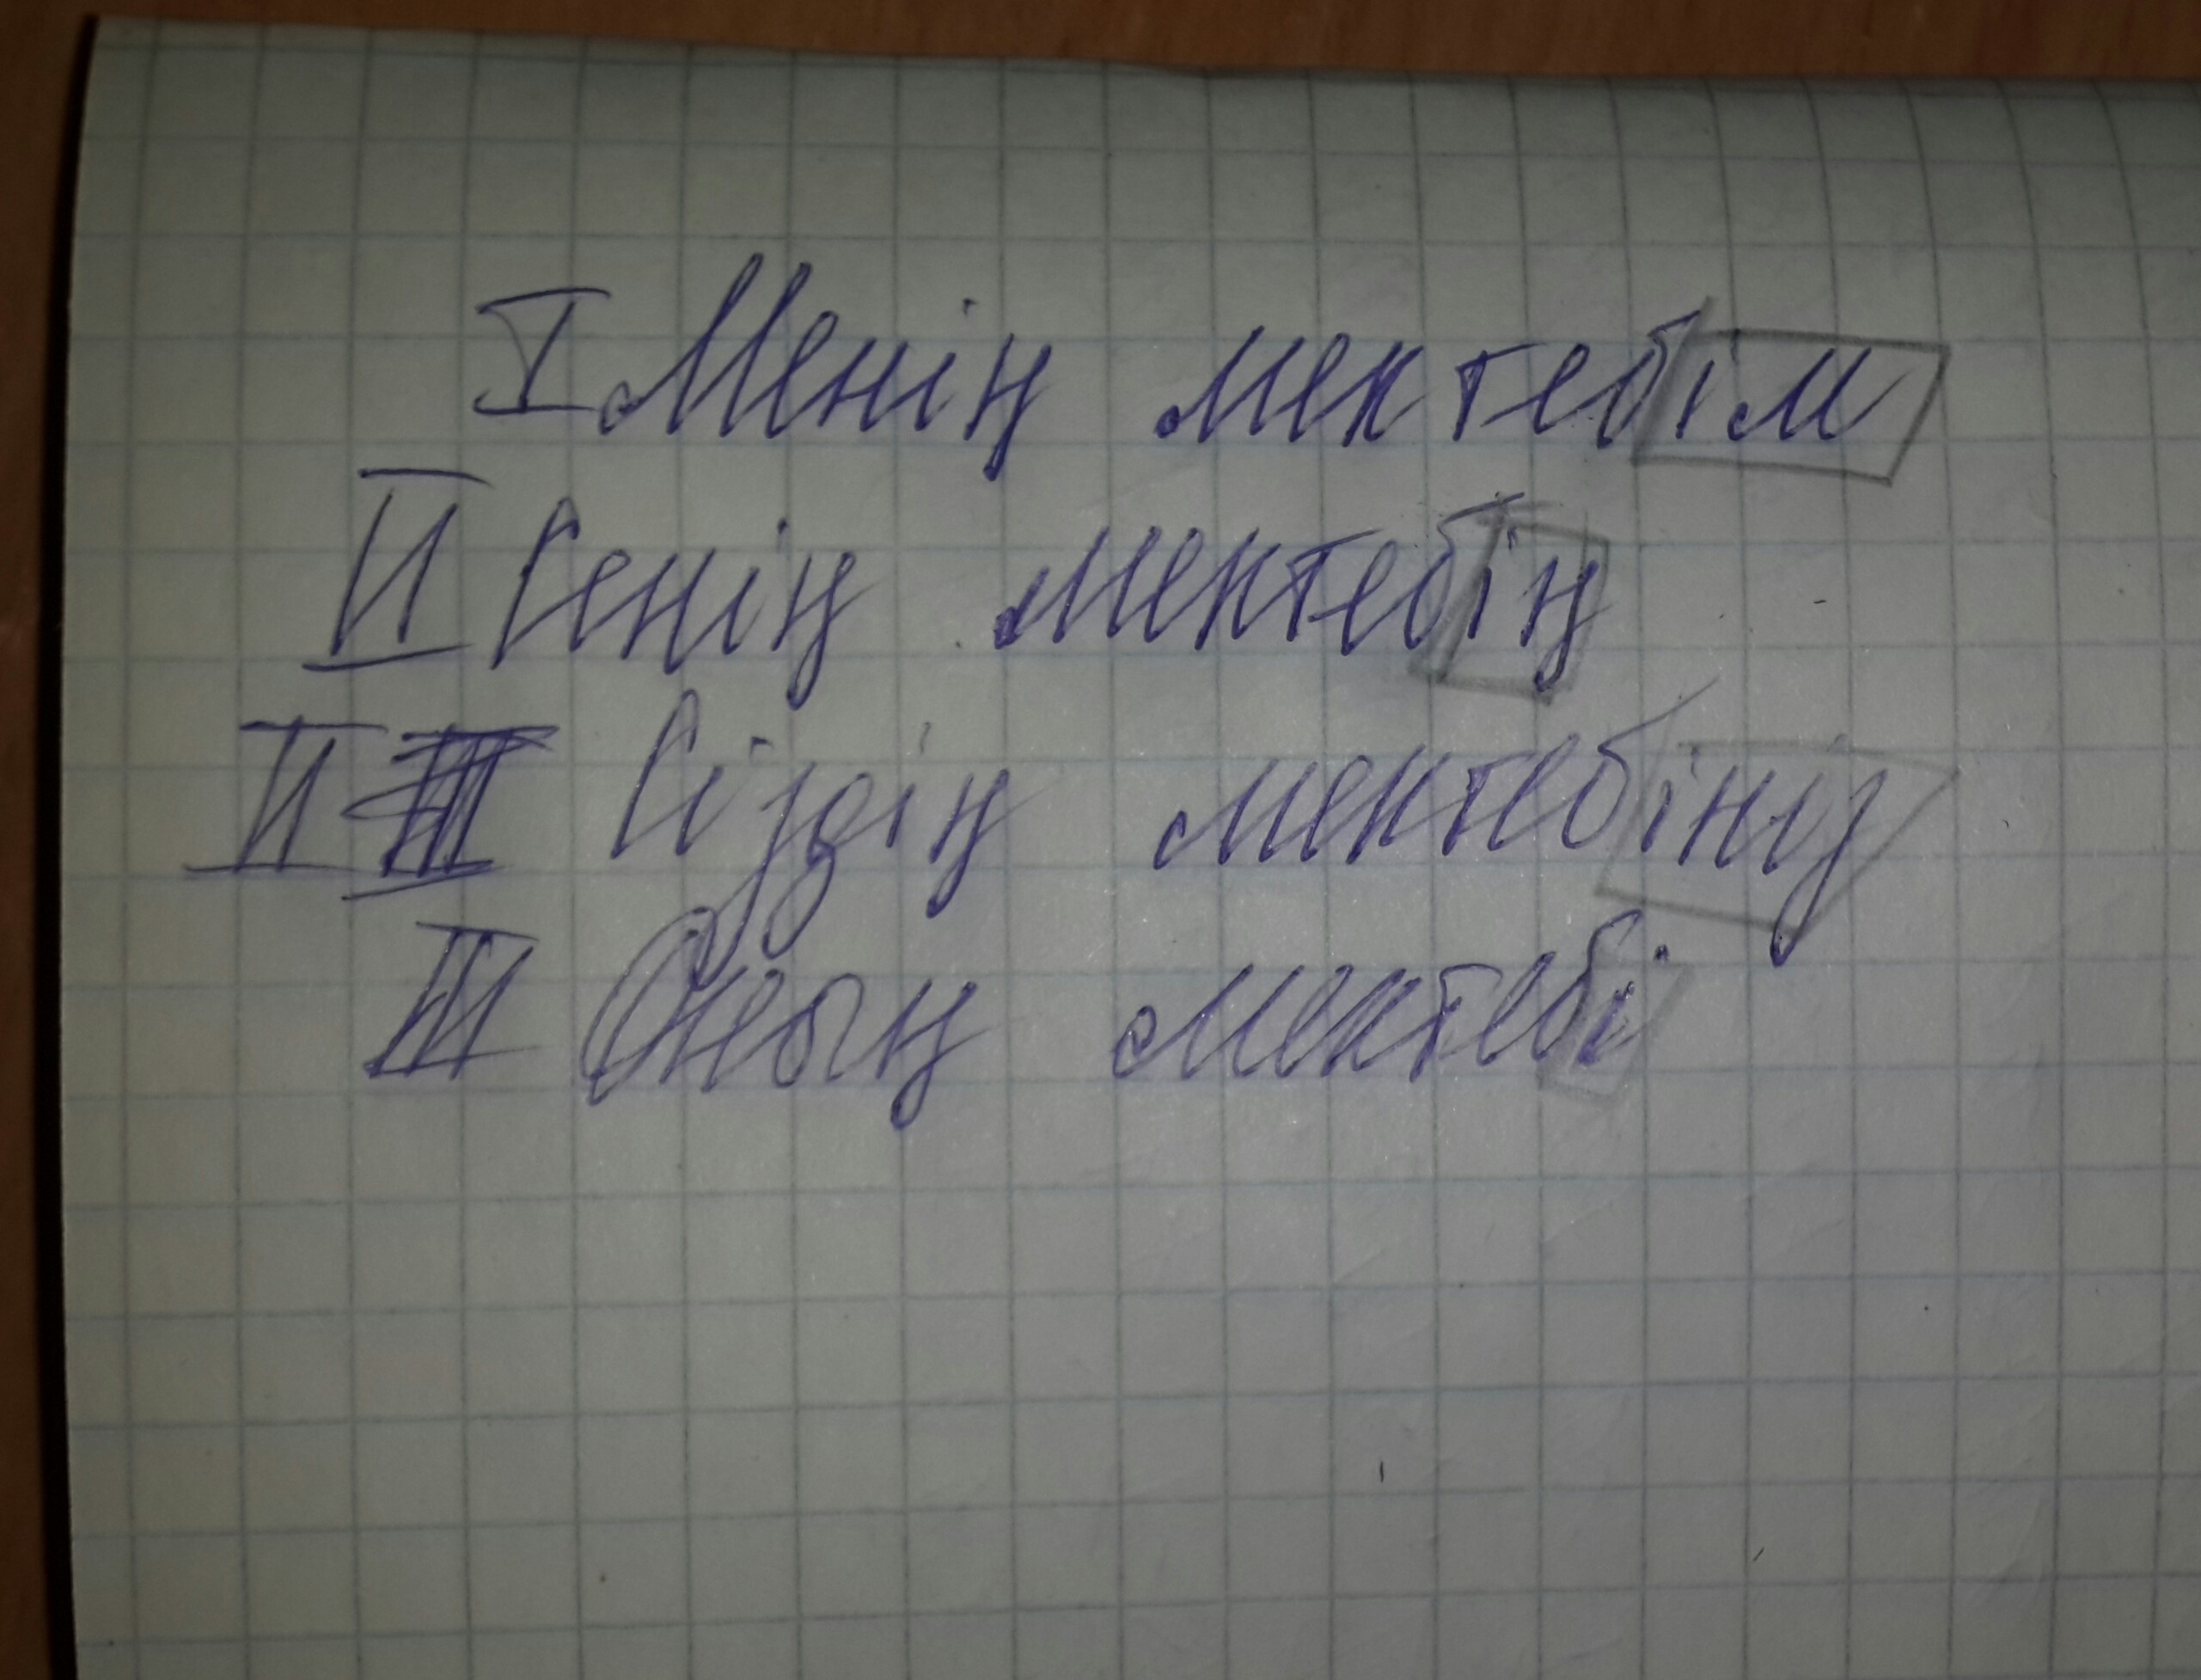 I Менің мектебім
II Сенің мектебің
II Сіздің мектебіңіз
III Оның мектебі